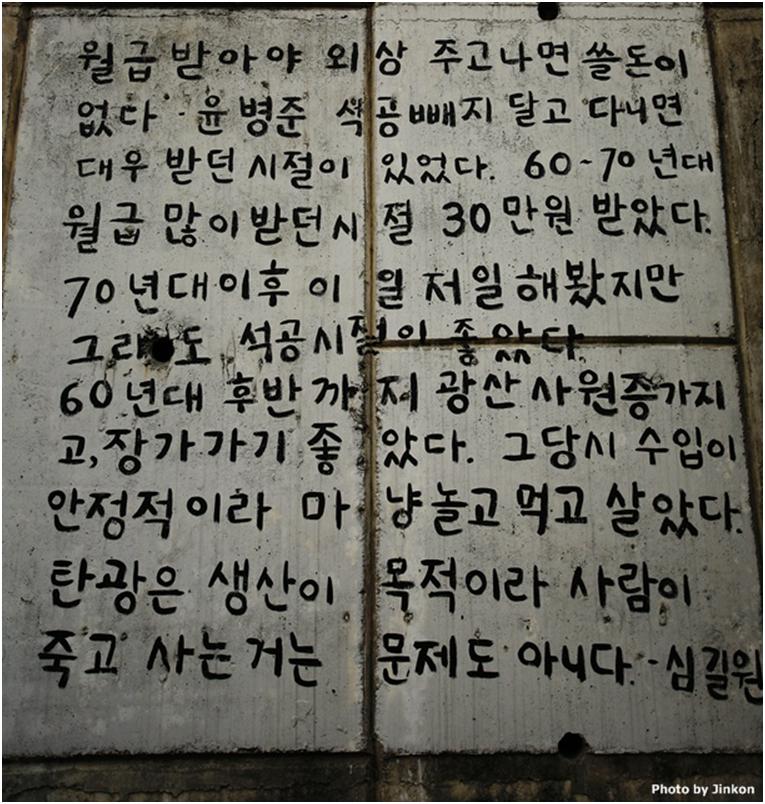 월급 받아야 외상 주고나면 쓸돈이
없다 - 윤병준 석공빼지 달고 다니면
대우 받던 시절이 있었다. 60~70년대
월급 많이받던시절 30만원 받았다.
70년대이후 이일 저일 해봤지만
그래도 석공시절이 좋았다
60년대 후반까지 광산 사원증가지
고, 장가가기 좋았다. 그당시 수입이
안정적이라 마냥놀고 먹고 살았다.
탄광은 생산이 목적이라 사람이
죽고 사는거는 문제도 아니다. - 심길원
Photo by Jinkon